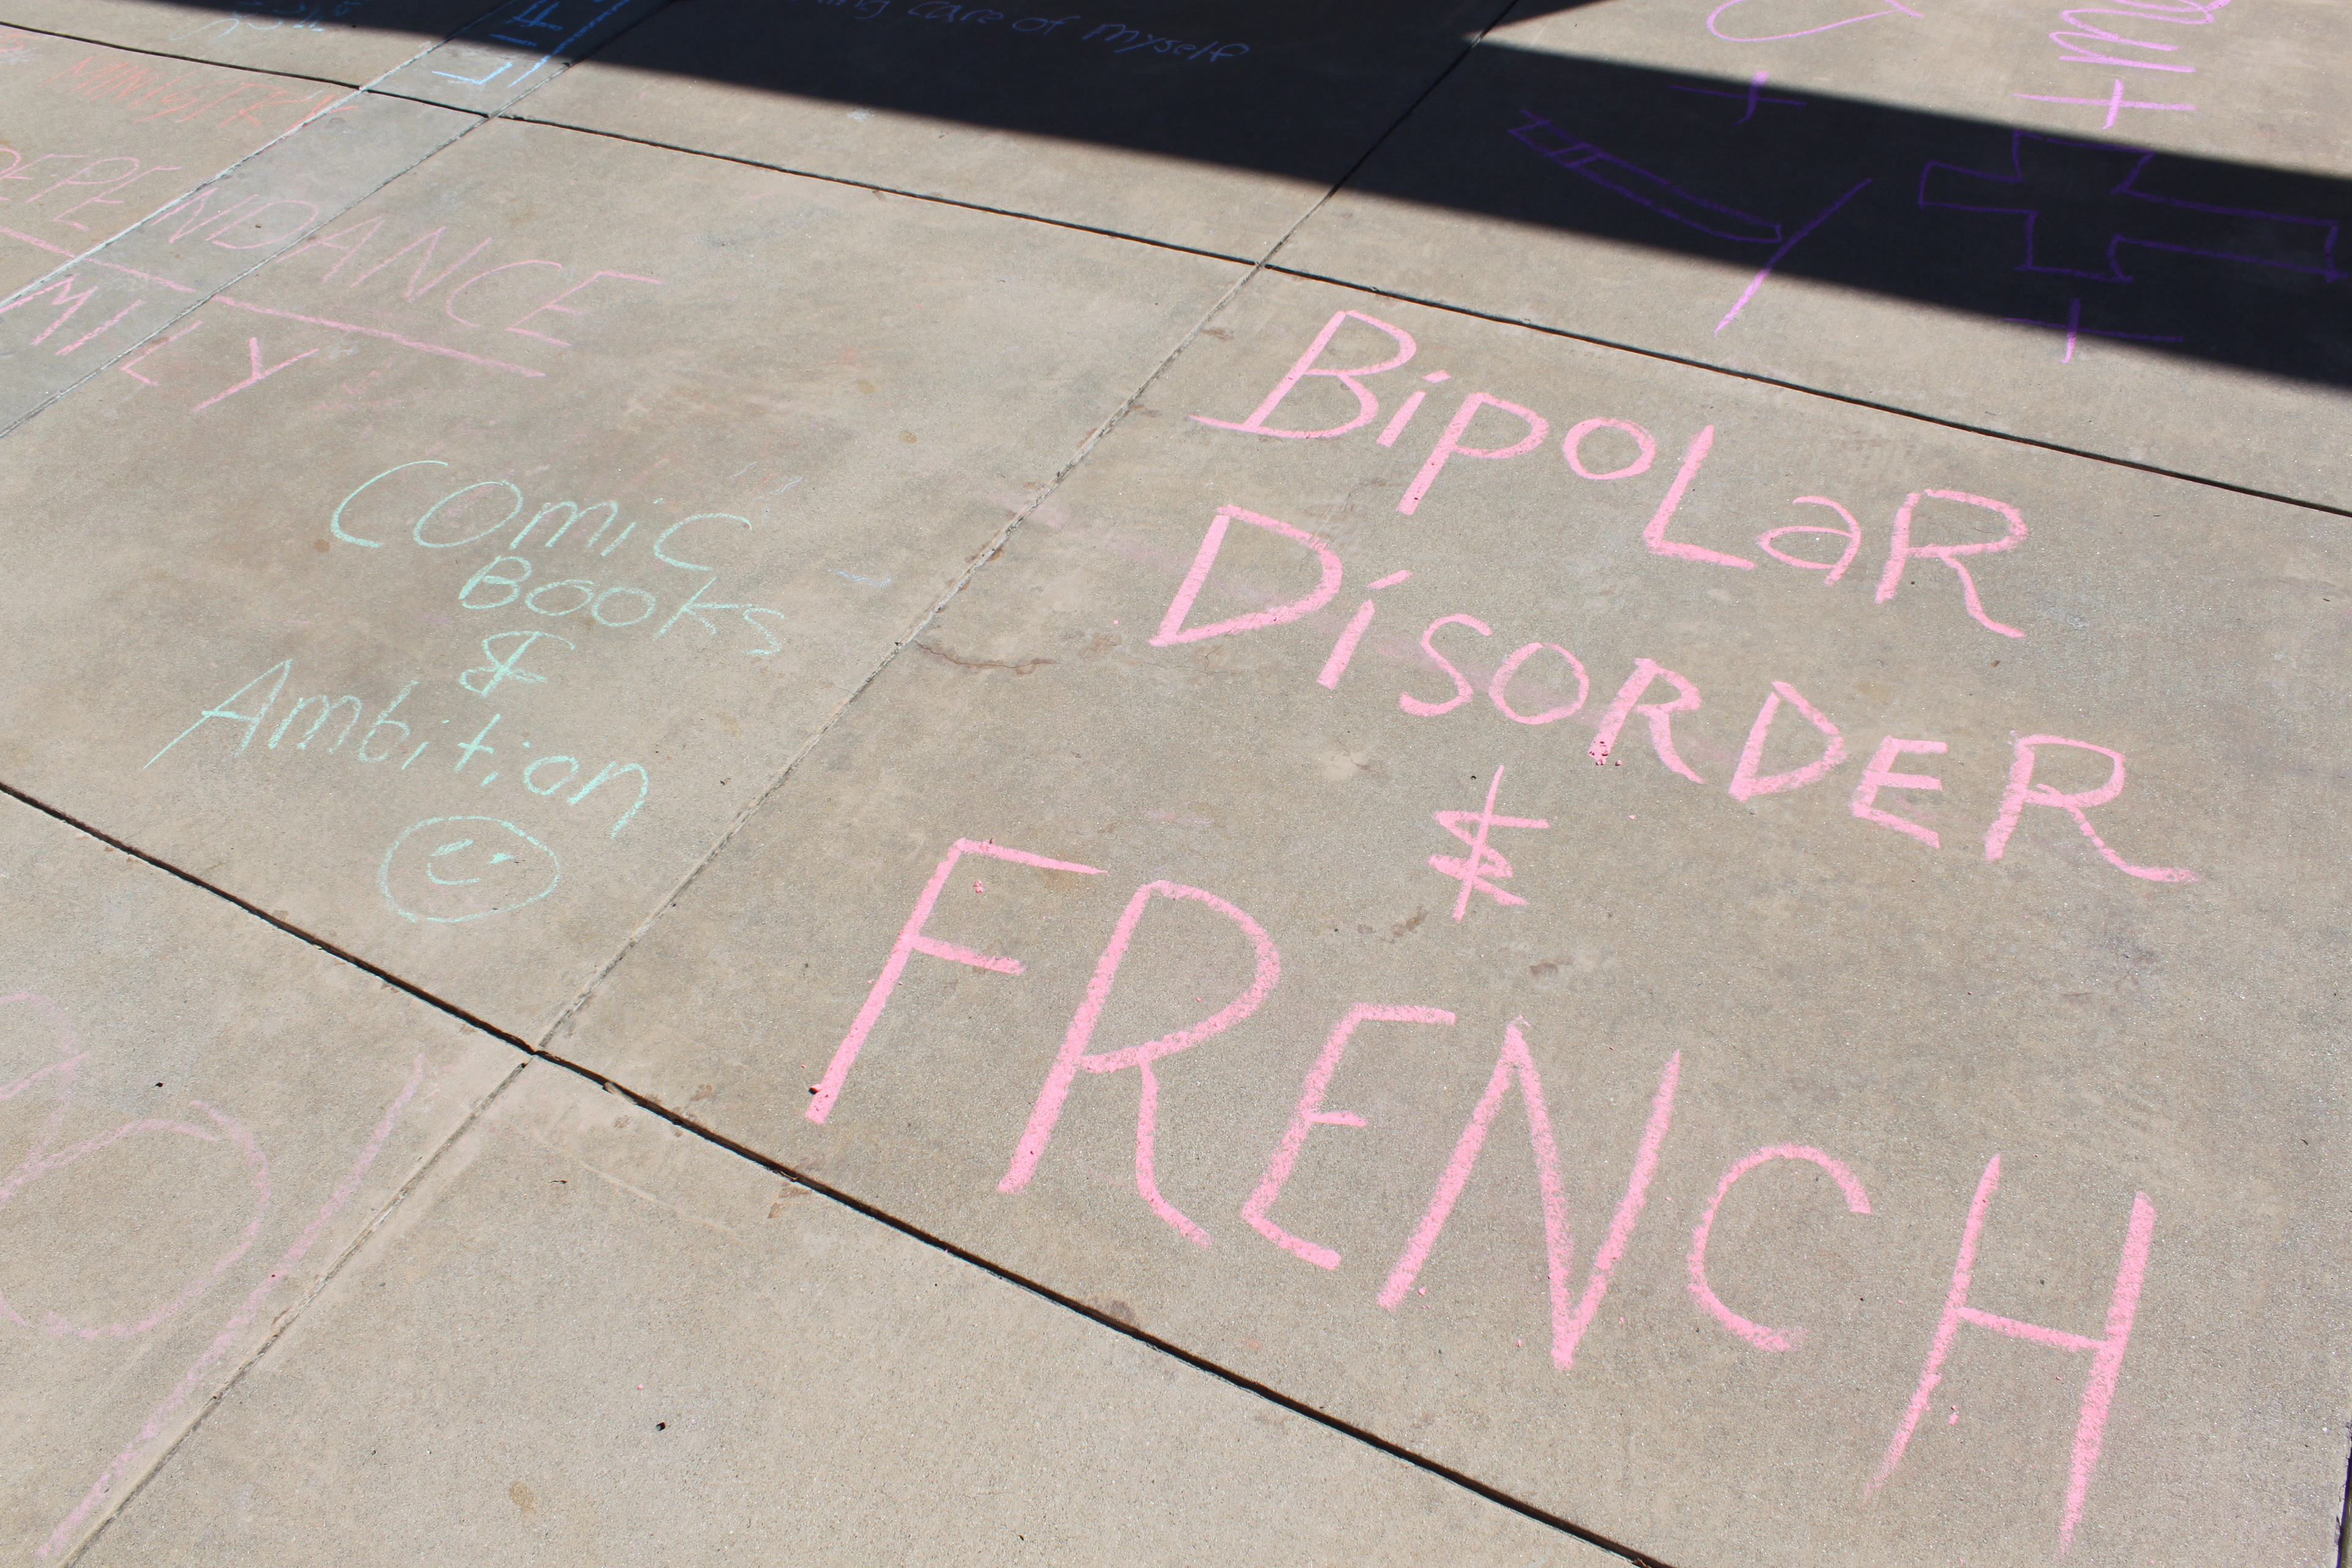 care of myself
MINISTRY
DEPENDANCE
MILY
COmiC
BOOKS
&
Ambition
BipoLaR
DisORDER
&
FRENCH